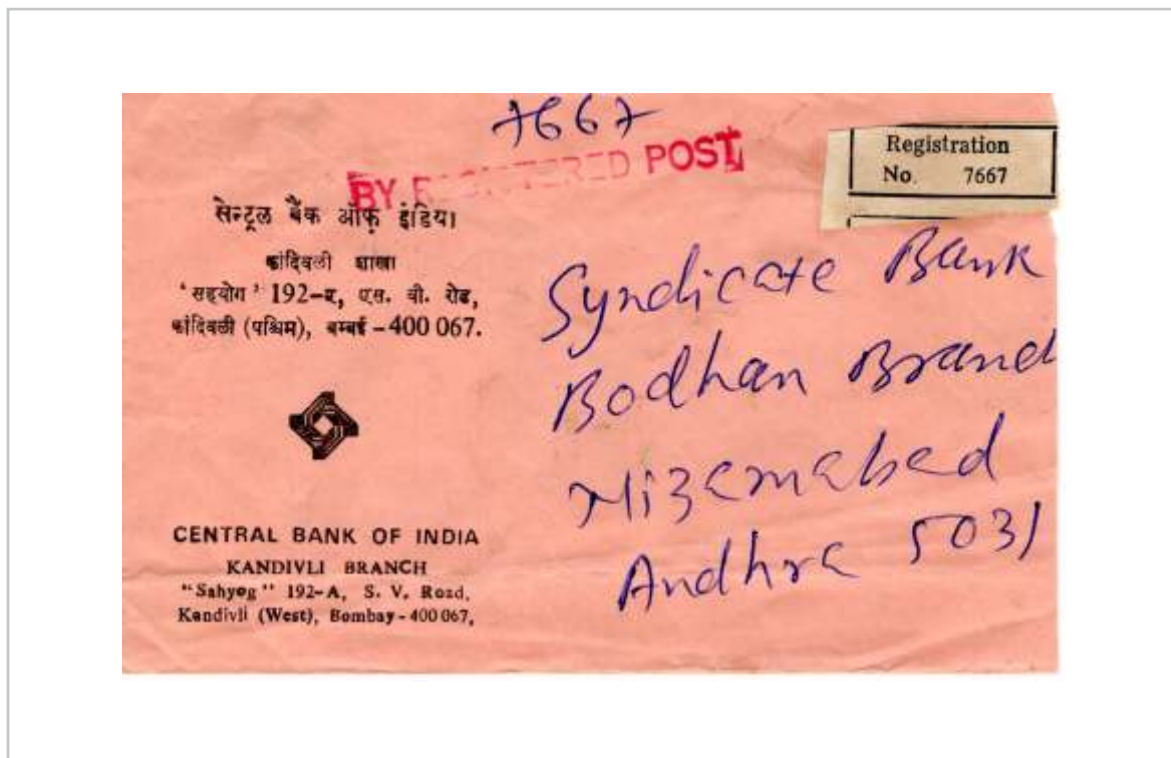 7667
BY REGISTERED POST
Registration
No. 7667
सेन्ट्रल बैंक ऑफ़ इंडिया
कांदिवली शाखा
'सहयोग' 192-ए, एस. वी. रोड,
कांदिवली (पश्चिम), बम्बई - 400 067.
CENTRAL BANK OF INDIA
KANDIVLI BRANCH
"Sahyog" 192-A, S. V. Road,
Kandivli (West), Bombay - 400 067,
Syndicate Bank
Bodhan Branch
Nizamabad
Andhra 5031